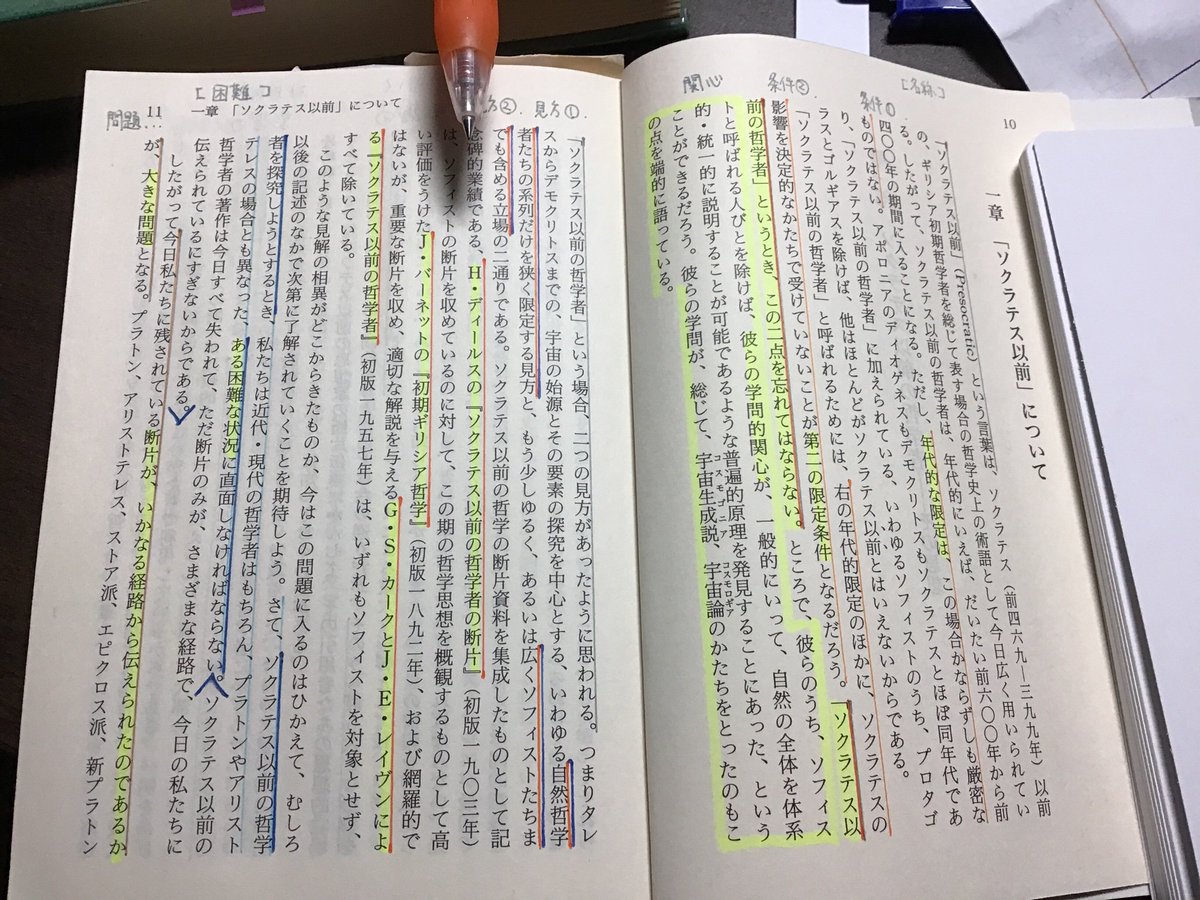 10
[名称]
条件①
条件②
関心
一章 「ソクラテス以前」について
「ソクラテス以前」(Presocratic) という言葉は、ソクラテス(前四六九―三九九年)以前
の、ギリシア初期哲学者を総じて表す場合の哲学史上の術語として今日広く用いられてい
る。したがって、ソクラテス以前の哲学者は、年代的にいえば、だいたい前六〇〇年から前
四〇〇年の期間に入ることになる。ただし、年代的な限定は、この場合かならずしも厳密な
ものではない。アポロニアのディオゲネスもデモクリトスもソクラテスとほぼ同年代であ
り、「ソクラテス以前の哲学者」に加えられている、いわゆるソフィストのうち、プロタゴ
ラスとゴルギアスを除けば、他はほとんどがソクラテス以前とはいえないからである。
「ソクラテス以前の哲学者」と呼ばれるためには、右の年代的限定のほかに、ソクラテスの
影響を決定的なかたちで受けていないことが第二の限定条件となるだろう。「ソクラテス以
前の哲学者」というとき、この二点を忘れてはならない。ところで、彼らのうち、ソフィス
トと呼ばれる人びとを除けば、彼らの学問的関心が、一般的にいって、自然の全体を体系
的・統一的に説明することが可能であるような普遍的原理を発見することにあった、という
ことができるだろう。彼らの学問が、総じて、宇宙生成説コスモゴニア、宇宙論コスモロギアのかたちをとったのもこ
の点を端的に語っている。
11
一章 「ソクラテス以前」について
見方①.
方②.
[困難]
問題…
「ソクラテス以前の哲学者」という場合、二つの見方があったように思われる。つまりタレ
スからデモクリトスまでの、宇宙の始源とその要素の探究を中心とする、いわゆる自然哲学
者たちの系列だけを狭く限定する見方と、もう少しゆるく、あるいは広くソフィストたちま
でも含める立場の二通りである。ソクラテス以前の哲学の断片資料を集成したものとして記
念碑的業績である、H・ディールスの『ソクラテス以前の哲学者の断片』(初版一九〇三年)
は、ソフィストの断片を収めているのに対して、この期の哲学思想を概観するものとして高
い評価をうけたJ・バーネットの『初期ギリシア哲学』(初版一八九二年)、および網羅的で
はないが、重要な断片を収め、適切な解説を与えるG・S・カークとJ・E・レイヴンによ
る『ソクラテス以前の哲学者』(初版一九五七年)は、いずれもソフィストを対象とせず、
すべて除いている。
このような見解の相異がどこからきたものか、今はこの問題に入るのはひかえて、むしろ
以後の記述のなかで次第に了解されていくことを期待しよう。さて、ソクラテス以前の哲学
者を探究しようとするとき、私たちは近代・現代の哲学者はもちろん、プラトンやアリスト
テレスの場合とも異なった、ある困難な状況に直面しなければならない。ソクラテス以前の
哲学者の著作は今日すべて失われて、ただ断片のみが、さまざまな経路で、今日の私たちに
伝えられているにすぎないからである。
したがって今日私たちに残されている断片が、いかなる経路から伝えられたのであるか
が、大きな問題となる。プラトン、アリストテレス、ストア派、エピクロス派、新プラトン